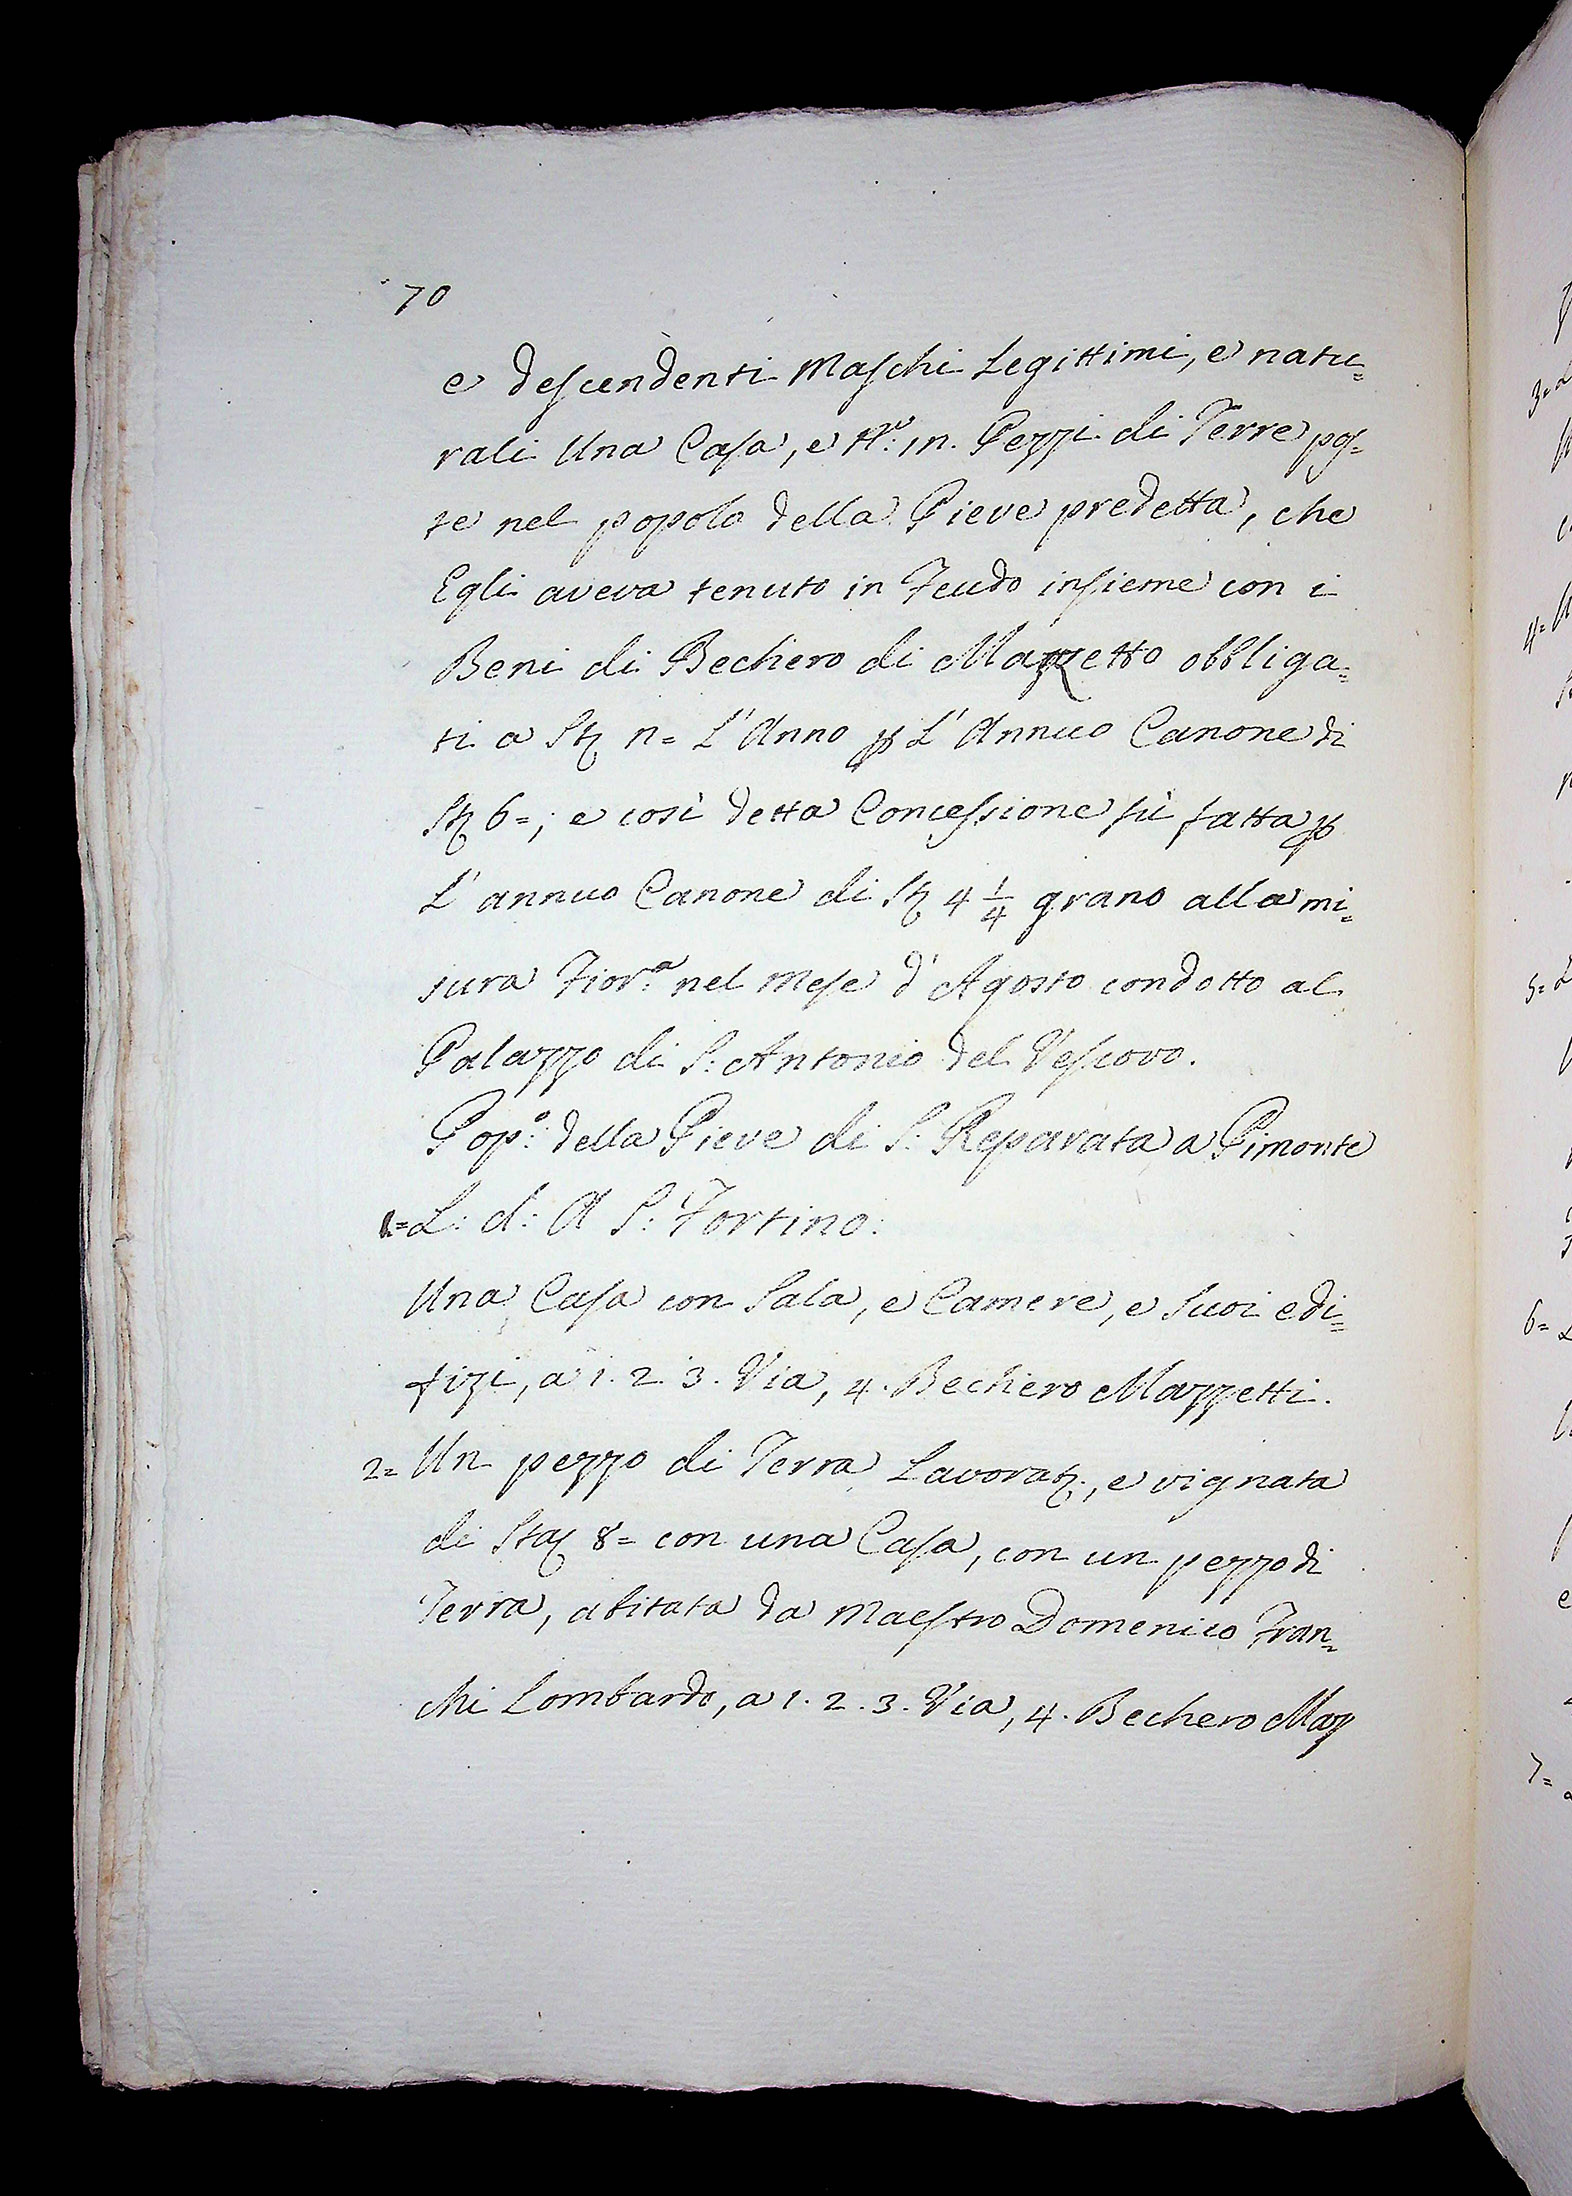 70
e descendenti Maschi Legittimi, e natu=
rali Una Casa, e N.º 1n. Pezzi di Terre pos=
te nel popolo della Pieve predetta, che
Egli aveva tenuto in Feudo insieme con i
Beni di Bechero di Mazzetto obbliga=
ti a St; n= L'Anno p L'Annuo Canone di
St; 6=; e così detta Concessione fù fatta p
L'annuo Canone di St; 4 1/4 grano alla mi=
sura Fior.ª nel Mese d'Agosto condotto al
Palazzo di S: Antonio del Vescovo.
Pop.º della Pieve di S: Reparata a Pimonte
1= L: d: A S: Fortino:
Una Casa con Sala, e Camere, e Suoi edi=
fizi, a 1. 2. 3. Via, 4. Bechero Mazzetti.
2= Un pezzo di Terra Lavorat;, e vignata
di Sta; 8= con una Casa, con un pezzo di
Terra, abitata da Maestro Domenico Fran=
chi Lombardo, a 1. 2. 3. Via, 4. Bechero Maz
3=
4=
5=
6=
7=